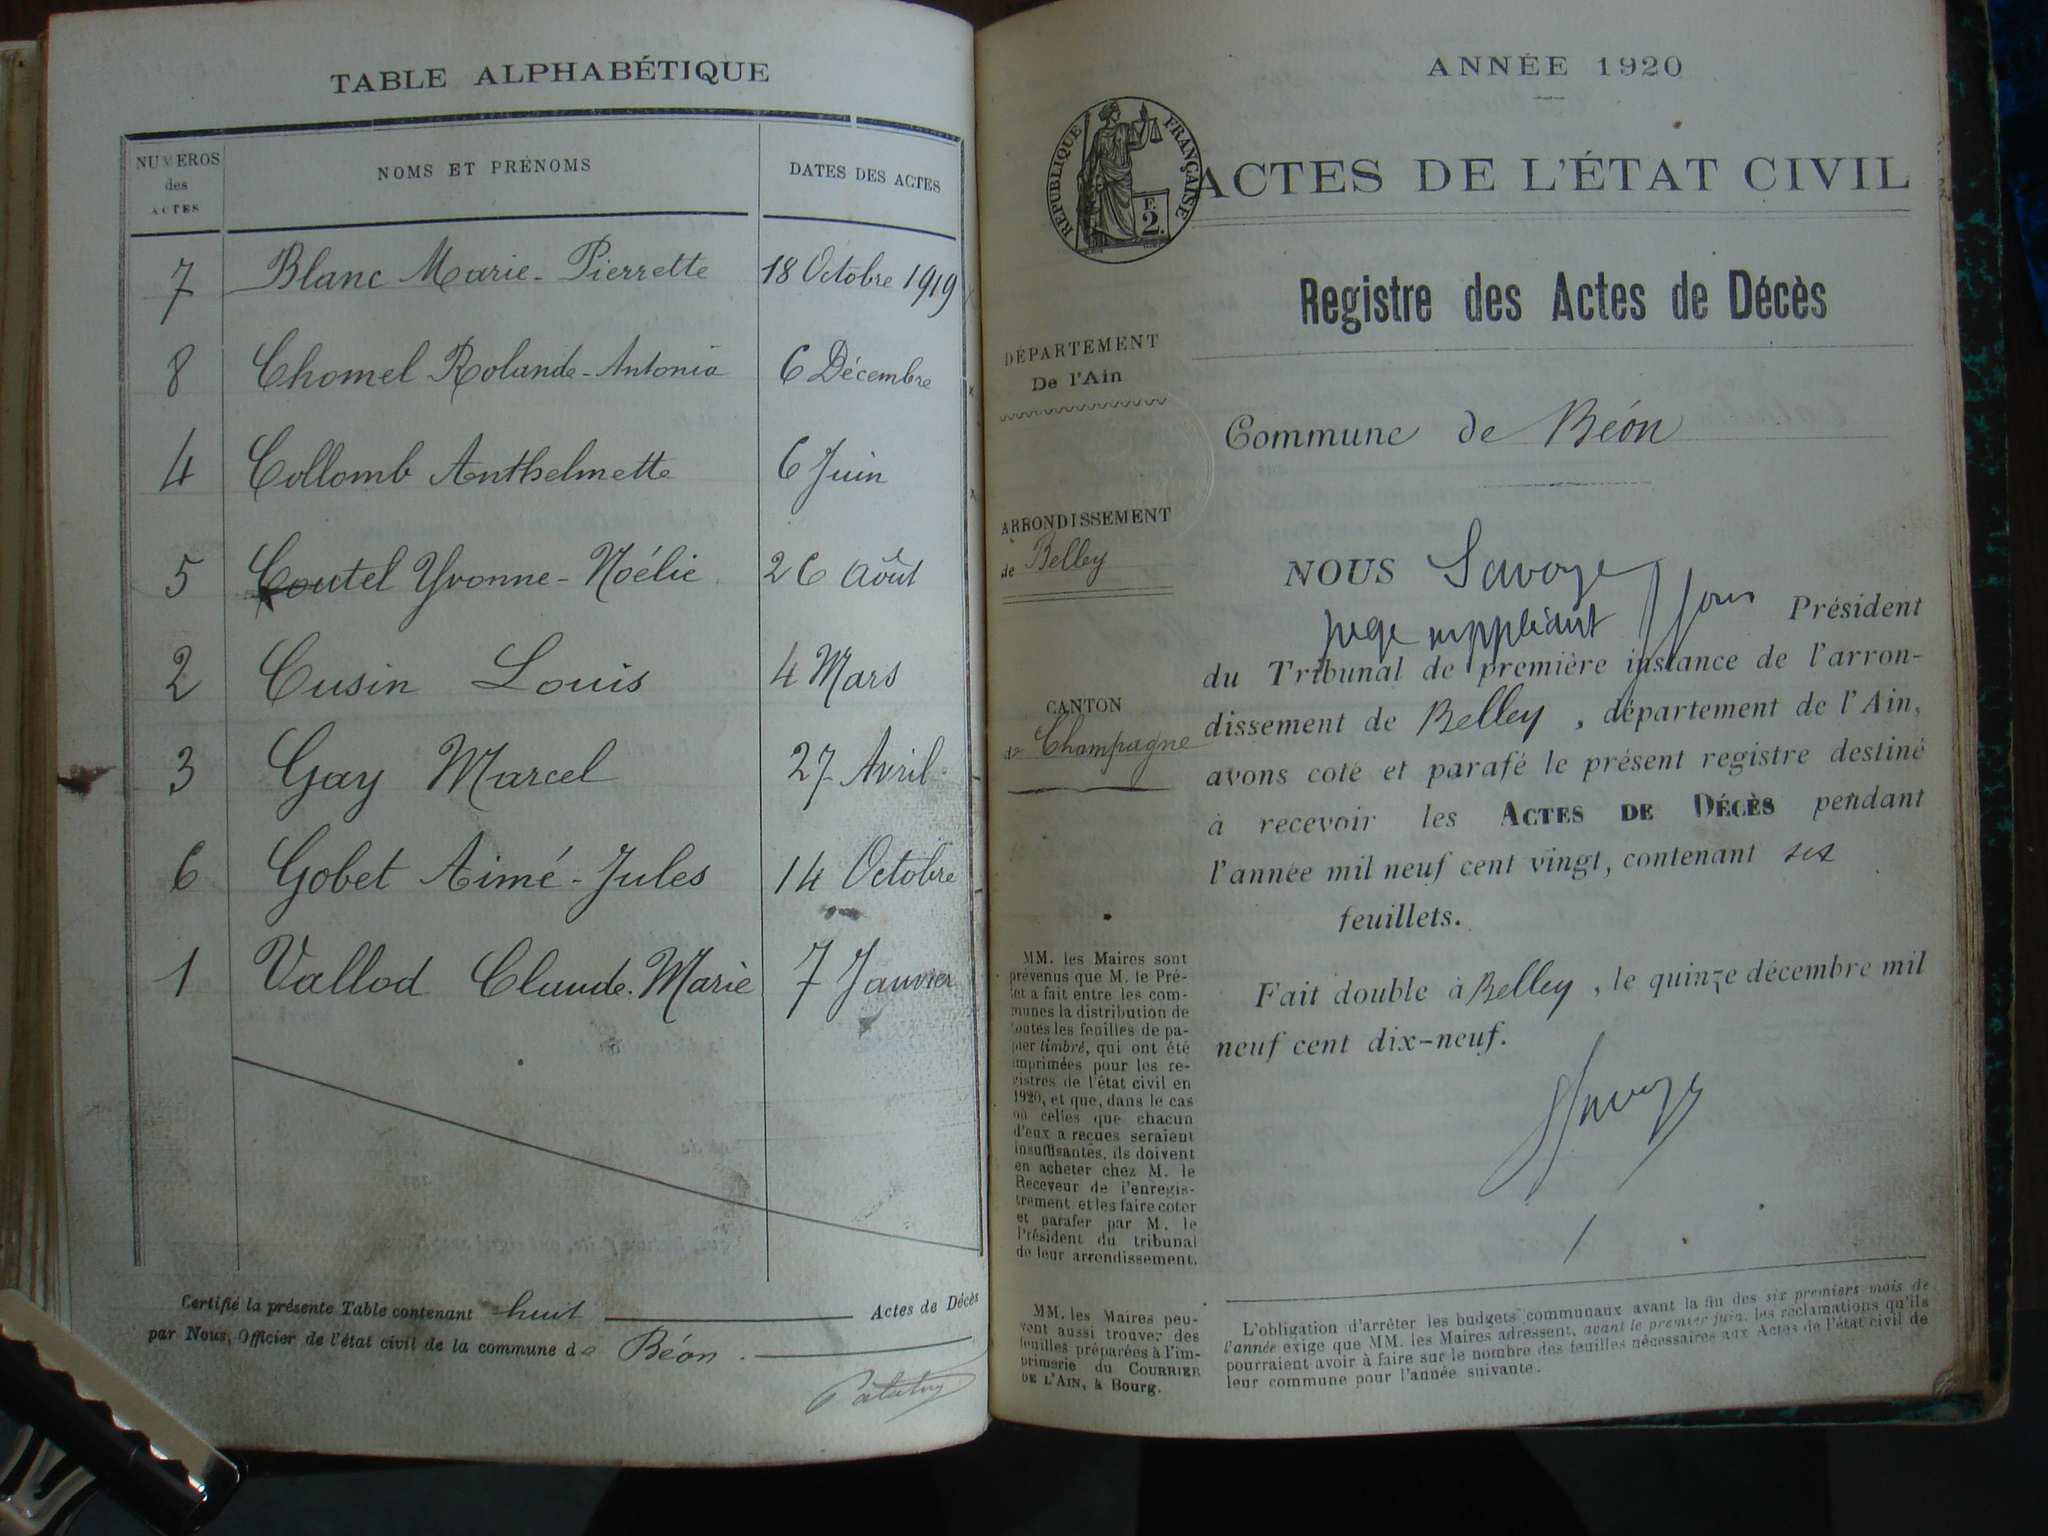 TABLE ALPHABÉTIQUE
NUMÉROS des ACTES
NOMS ET PRÉNOMS
DATES DES ACTES
7 Blanc Marie-Pierrette 18 Octobre 1919
8 Chomel Rolande-Antonia 6 Décembre
4 Collomb Anthelmette 6 Juin
5 Coutel Yvonne-Noélie 26 Août
2 Cusin Louis 4 Mars
3 Gay Marcel 27 Avril
6 Gobet Aimé-Jules 14 Octobre
1 Vallod Claude-Marie 7 Janvier
Certifié la présente Table contenant huit Actes de Décès
par Nous, Officier de l'état civil de la commune de Béon.
ANNÉE 1920
RÉPUBLIQUE FRANÇAISE
F. 2.
ACTES DE L'ÉTAT CIVIL
Registre des Actes de Décès
DÉPARTEMENT
De l'Ain
Commune de Béon
ARRONDISSEMENT
de Belley
CANTON
de Champagne
NOUS Savoye
juge suppléant Président
du Tribunal de première instance de l'arron-
dissement de Belley, département de l'Ain,
avons coté et parafé le présent registre destiné
à recevoir les ACTES DE DÉCÈS pendant
l'année mil neuf cent vingt, contenant six
feuillets.
Fait double à Belley, le quinze décembre mil
neuf cent dix-neuf.
Savoye
MM. les Maires sont
prévenus que M. le Pré-
fet a fait entre les com-
munes la distribution de
toutes les feuilles de pa-
pier timbré, qui ont été
imprimées pour les re-
gistres de l'état civil en
1920, et que, dans le cas
où celles que chacun
d'eux a reçues seraient
insuffisantes, ils doivent
en acheter chez M. le
Receveur de l'enregis-
trement et les faire coter
et parafer par M. le
Président du tribunal
de leur arrondissement.
MM. les Maires peu-
vent aussi trouver des
feuilles préparées à l'im-
primerie du COURRIER
DE L'AIN, à Bourg.
L'obligation d'arrêter les budgets communaux avant la fin des six premiers mois de
l'année exige que MM. les Maires adressent, avant le premier juin, les réclamations qu'ils
pourraient avoir à faire sur le nombre des feuilles nécessaires aux Actes de l'état civil de
leur commune pour l'année suivante.